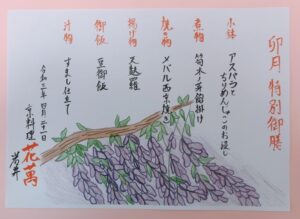 卯月 特別御膳
小鉢
アスパラと
ちりめんじゃこのお浸し
煮物
筍木ノ芽餡掛け
焼き物
メバル西京焼き
揚げ物
天麩羅
御飯
豆御飯
汁物
すまし仕立て
令和三年 四月二十一日
京料理 花萬